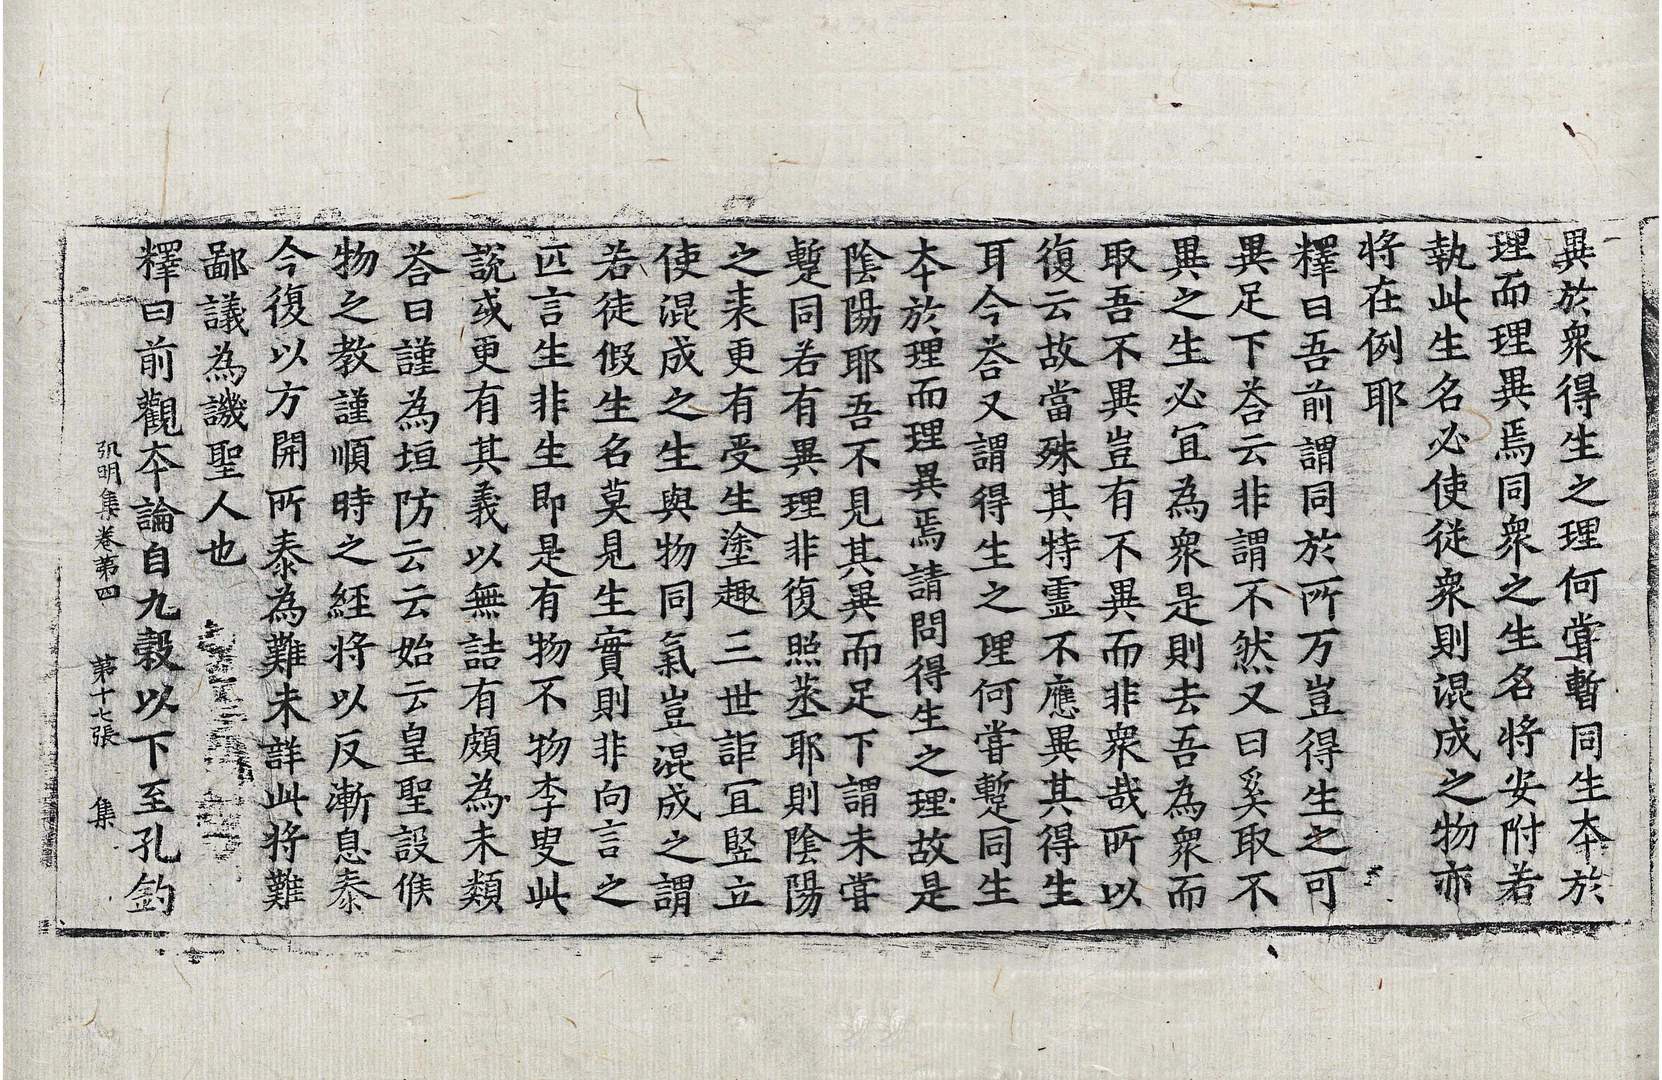 異於衆得生之理何甞暫同生本於
理而理異焉同衆之生名將安附若
執此生名必使從衆則混成之物亦
將在例耶
釋曰吾前謂同於所万豈得生之可
異足下荅云非謂不然又曰奚取不
異之生必冝為衆是則去吾為衆而
取吾不異豈有不異而非衆哉所以
復云故當殊其特靈不應異其得生
耳今荅又謂得生之理何甞蹔同生
本於理而理異焉請問得生之理故是
陰陽耶吾不見其異而足下謂未甞
蹔同若有異理非復煦蒸耶則陰陽
之表更有受生塗趣三世詎冝竪立
使混成之生與物同氣豈混成之謂
若徒假生名莫見生實則非向言之
匹言生非生即是有物不物李叟此
說或更有其義以無詰有頗為未類
荅曰謹為垣防云云始云皇聖設候
物之教謹順時之經將以反漸息泰
今復以方開所泰為難未詳此將難
鄙議為譏聖人也
釋曰前觀本論自九穀以下至孔釣
弘明集卷第四　第十七張　集